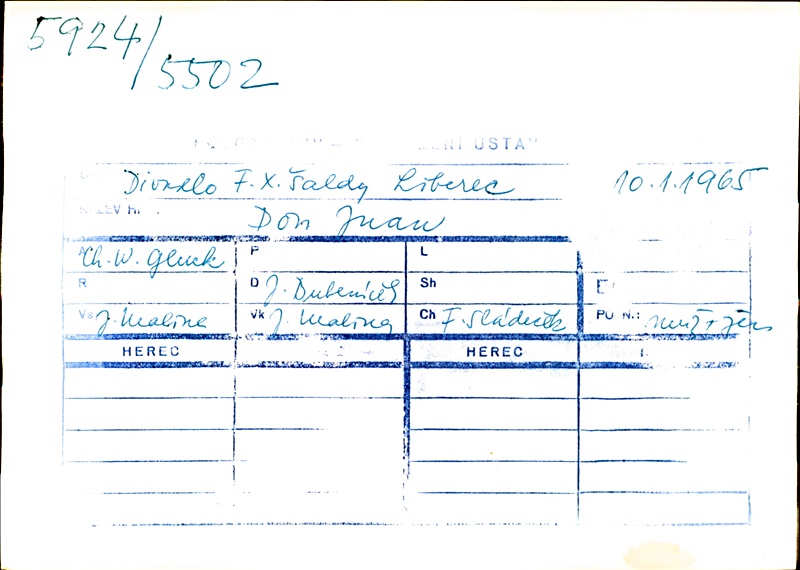 5924/
5502
ERNÍ ÚSTAV
Divadlo F. X. Šaldy Liberec 10.1.1965
Don Juan
A Ch. W. Gluck P L
R D J. Dubeníček Sh
Vs J. Malina Vk J. Malina Ch F. Sládeček muž + žen
HEREC HEREC